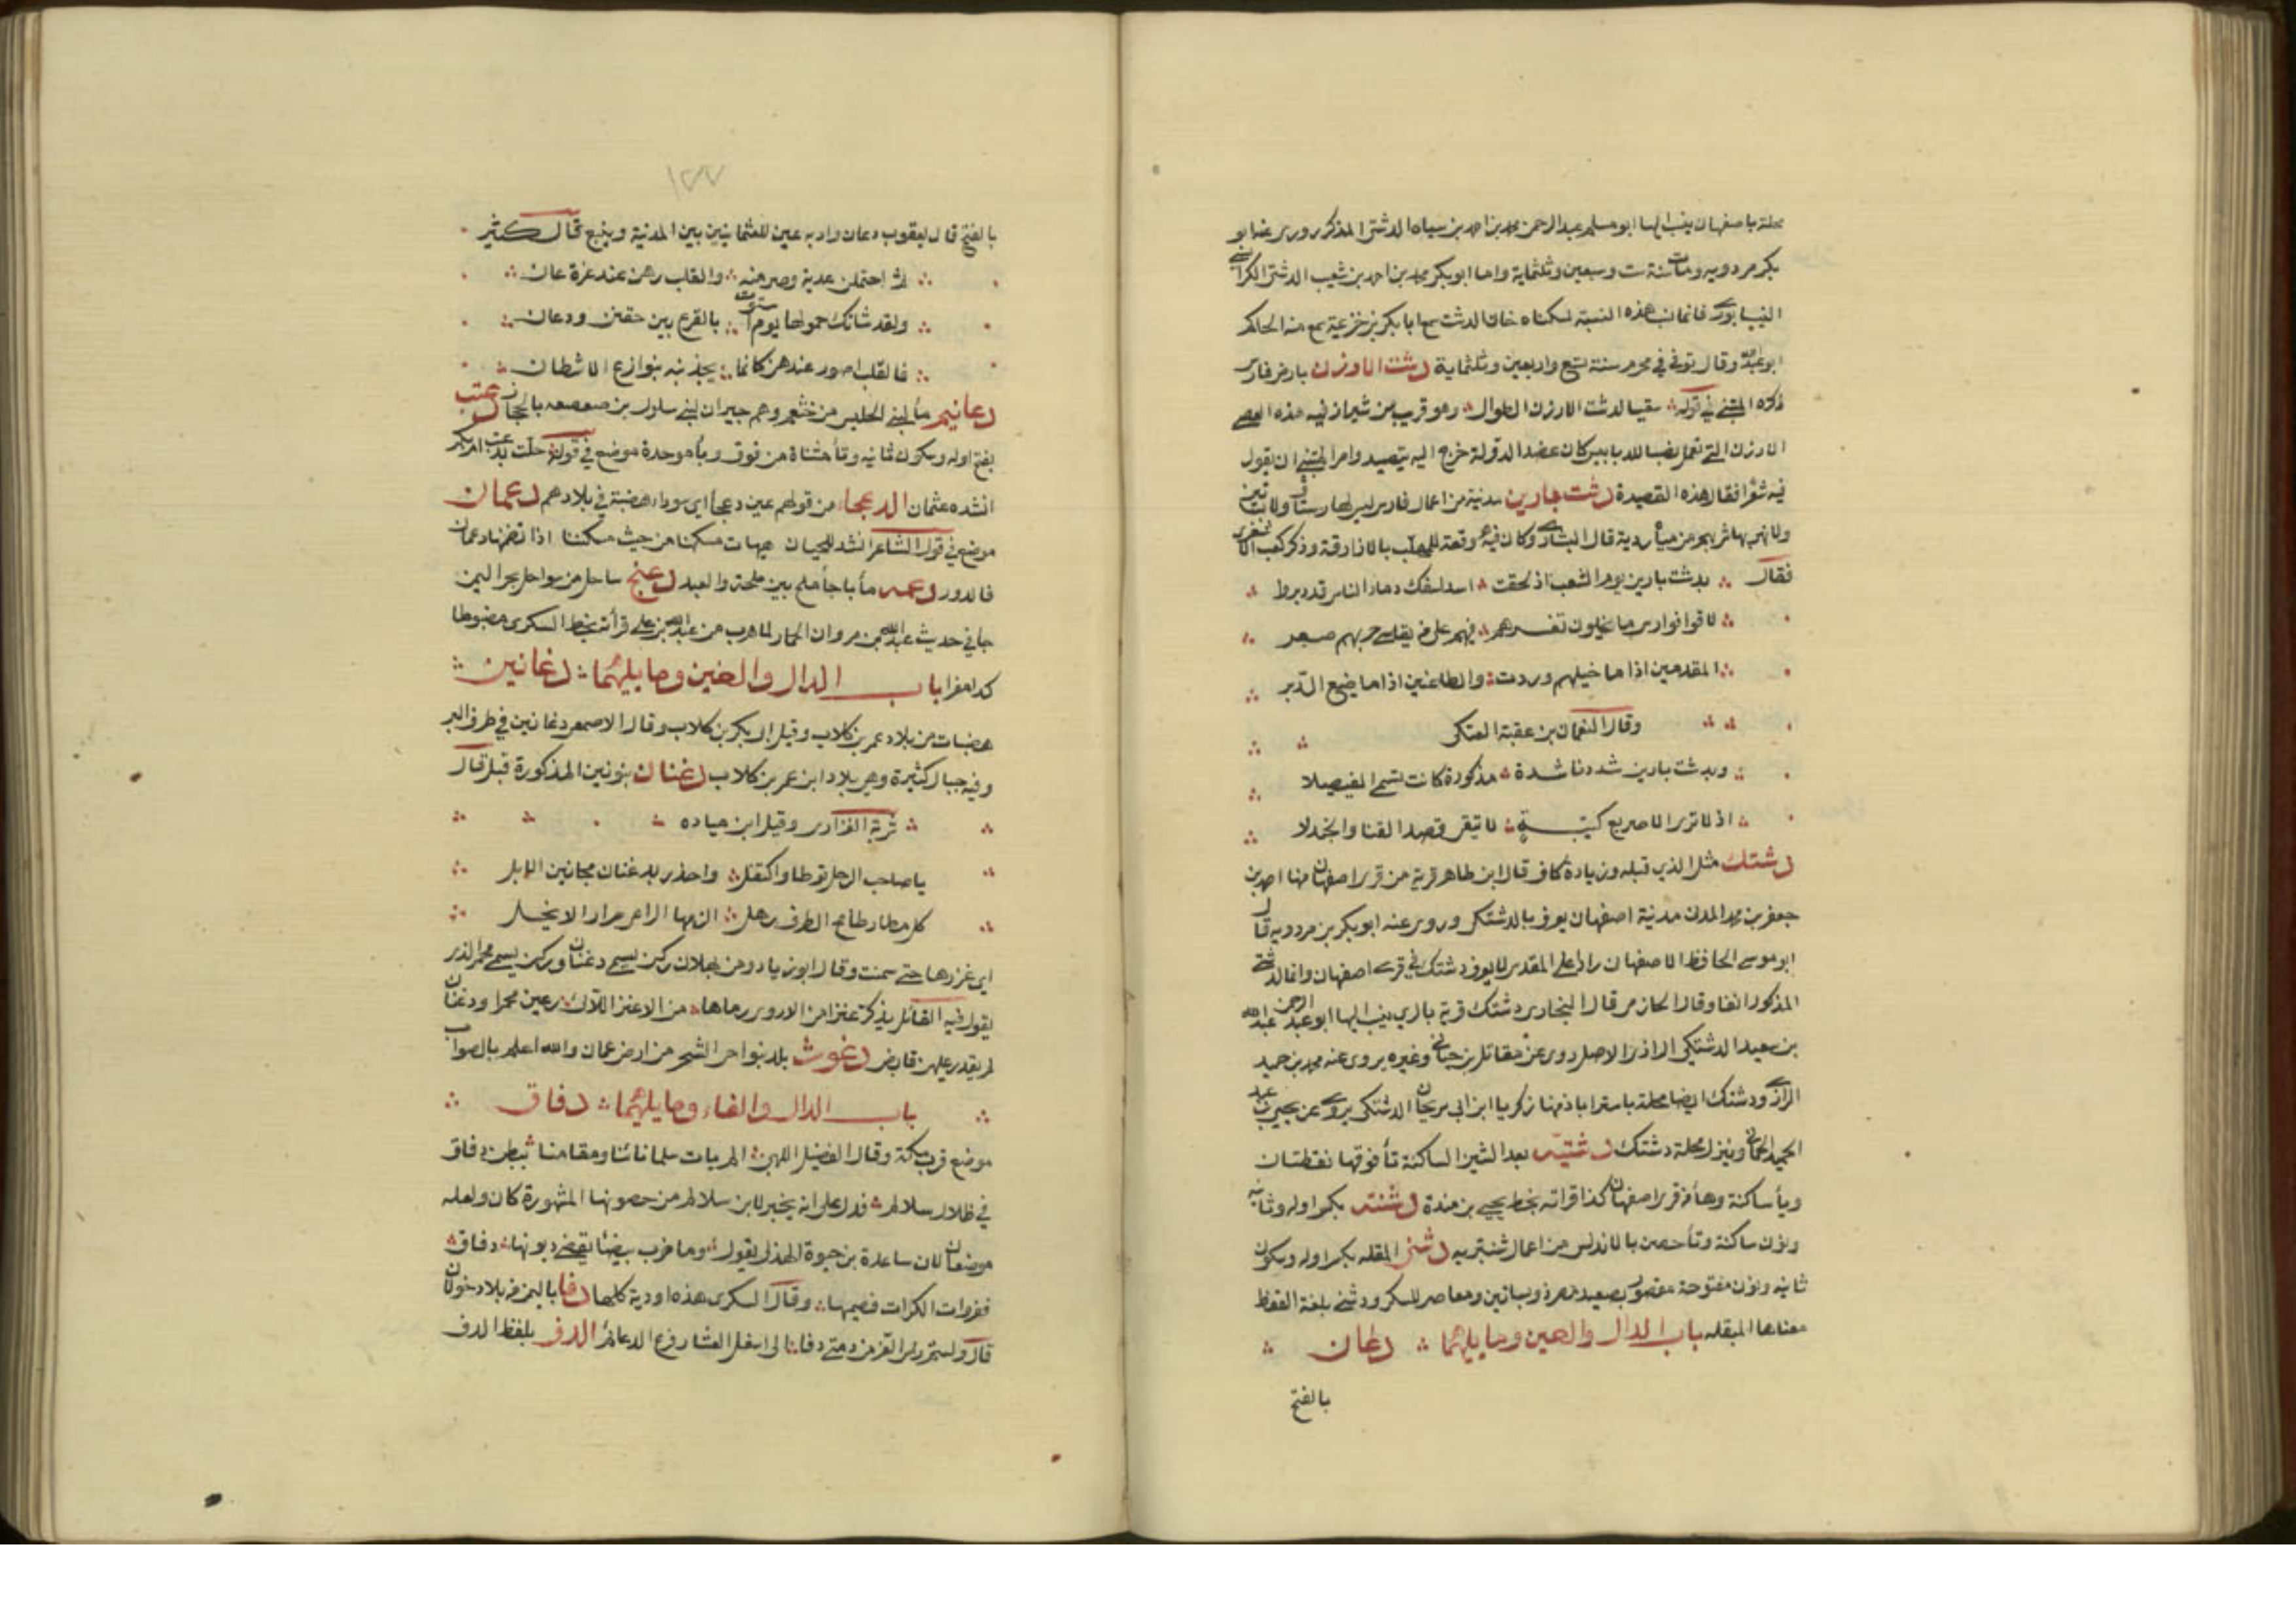 محلة باصفهان ينسب اليها ابو مسلم عبد الرحمن بن محمد بن احمد بن سياه الدشتي المذكر روى عنه ابو
بكر مردويه ومات سنة ست وسبعين وثلثماية واما ابو بكر محمد بن احمد بن شعيب الدشتي الكرا
النيسابوري فانما نسب هذه النسبة لسكناه خان الدشت سمع ابا بكر بن خزيمة سمع منه الحاكم
ابو عبد الله وقال توفي في محرم سنة تسع واربعين وثلثماية دشت الارزن بارض فارس
ذكره المتنبي في قوله سقيا لدشت الارزن الطوال وهو قرب من شيراز فيه هذه العصي
الارزن التي تعمل نصبا للدبابيس كان عضد الدولة خرج اليه يتصيد وامر المتنبي ان يقول
فيه شعرا فقال هذه القصيدة دشت بارين مدينة من اعمال فارس ليس لها رستاق ولا بساتين
ولا نهر بها شربهم من مياه ردية قال البشاري وكان فيه وقعة للمهلب بالازارقة وذكر كعب الاشقري
فقال بدشت بارين يوم الشعب اذ لحقت اسد بسفك دماء الناس قد دبروا
لاقوا فوارس ما يخلون ثغرهم فيهم على من يقاسي حربهم صعر
المقدمين اذا ما خيلهم وردت والطاعنين اذا ما ضيع الدبر
وقال النعمان بن عقبة العتكي
وبدشت بارين شددنا شدة مذكورة كانت تسمى الفيصلا
اذ لا ترى الا صريع كتيبة لا تيقى قصد القنا والجندلا
دشتك مثل الذي قبله وزيادة كاف قال ابن طاهر قرية من قرى اصفهان منها احمد بن
جعفر بن محمد المدن مدينة اصفهان يعرف بالدشتكي وروى عنه ابو بكر بن مردويه قال
ابو موسى الحافظ الاصفهان رادا على المقدسي لا يعرف دشتك في قرى اصفهان وانما الدشتي
المذكور انفا وقال الحازمي قال البخاري دشتك قرية بالري ينسب اليها ابو عبد الرحمن عبد الله
بن سعيد الدشتكي الرازي الاصل روى عن مقاتل بن حيان وغيره يروى عنه محمد بن حميد
الرازي ودشتك ايضا محلة باستراباذ منها زكريا ابن ابي ريحان الدشتكي يروي عن يحيى بن عبد
الحميد الحماني وينزل محلة دشتك دشتيه بعد الشين الساكنة تأ فوقها نقطتان
ويأ ساكنة وهأ من قرى اصفهان كذا قراته بخط يحيى بن مندة دشنت بكسر اوله وثانيه
ونون ساكنة وتأ حصن بالاندلس من اعمال شنتريه دشنى المقله بكسر اوله وسكون
ثانيه ونون مفتوحة مقصور بصعيد مصر ذو بساتين ومعاصر للسكر ودشنى بلغة القفط
معناها المبقله باب الدال والعين وما يليهما دعان
بالفتح
١٧٧
بالفتح قال يعقوب دعان واد به عين للعثمانيين بين المدينة وينبع قال كثير
ثم احتملن غدية وصرمنه والقلب رهن عند عزة عان
ولقد شانك حمولها يوم استوت بالفرع بين حفين ودعان
فالقلب اصور عندهن كانما يجذبنه بنوازع الاشطان
دعانيم مأ لبني الحليس من خثعم وهم جيران لبني سلول بن صعصعه بالحجاز دعتب
بفتح اوله وسكون ثانيه وتأ مثناة من فوق وبأ موحدة موضع في قوله حلت بدعتب ام بكر
انشده عثمان الدعجاء من قولهم عين دعجأ اي سوداء هضبة في بلادهم دعمان
موضع في قول الشاعر انشد للحيان هيهات مسكنا من حيث مسكننا اذا تضمنها دعمان
فالدور دعمه مأ باجأ ملح بين ملحة والعبد دعنج ساحل من سواحل بحر اليمن
جا في حديث عبد الله بن مروان الحمار لما هرب من عبد الله بن علي قرأته بخط السكرى مضبوطا
كدا مفرا باب الدال والغين وما يليهما دغانين
هضبات من بلاد عمرو بن كلاب وقيل ابي بكر بن كلاب وقال الاصمعي دغانين في طرف البر
وفيه جبال كثيرة وهي بلاد ابن عمر بن كلاب دغنان بنونين المذكورة قبل قال
ثرية الفزادى وقيل ابن مياده
يا صاحب الرحل توطا واكتفل واحذر بدغنان مجانين الابل
كل مطار طامح الطرف رهل الزمها الراعي مرار الانخل
اي غزرها حتى سمنت وقال ابو زياد ومن ثهلان ركن يسمى دغنان وركن يسمى محمر الذي
يقول فيه القائل يذكر عنزا من الاروى رماها من الاعنز اللاى رعين محمرا ودغنان
لم يقدر عليهن قابض دغوث بلد بنواحي الشحر من ارض عمان والله اعلم بالصواب
باب الدال والفاء وما يليهما دفاق
موضع قرب مكة وقال الفضل اللهبي الم يات سلما نأنا ومقامنا ببطن دفاق
في ظلال سلالم فدل على انه بخيبر لان سلالم من حصونها المشهورة كان ولعله
موضعان لان ساعدة بن جوية الهذلي يقول وما ضرب بيضا يسقي دبوبها دفاق
فعروان الكرات فضيمها وقال السكرى هذه اودية كلها دفا باليمن في بلاد خولان
الدف بلفظ الدف